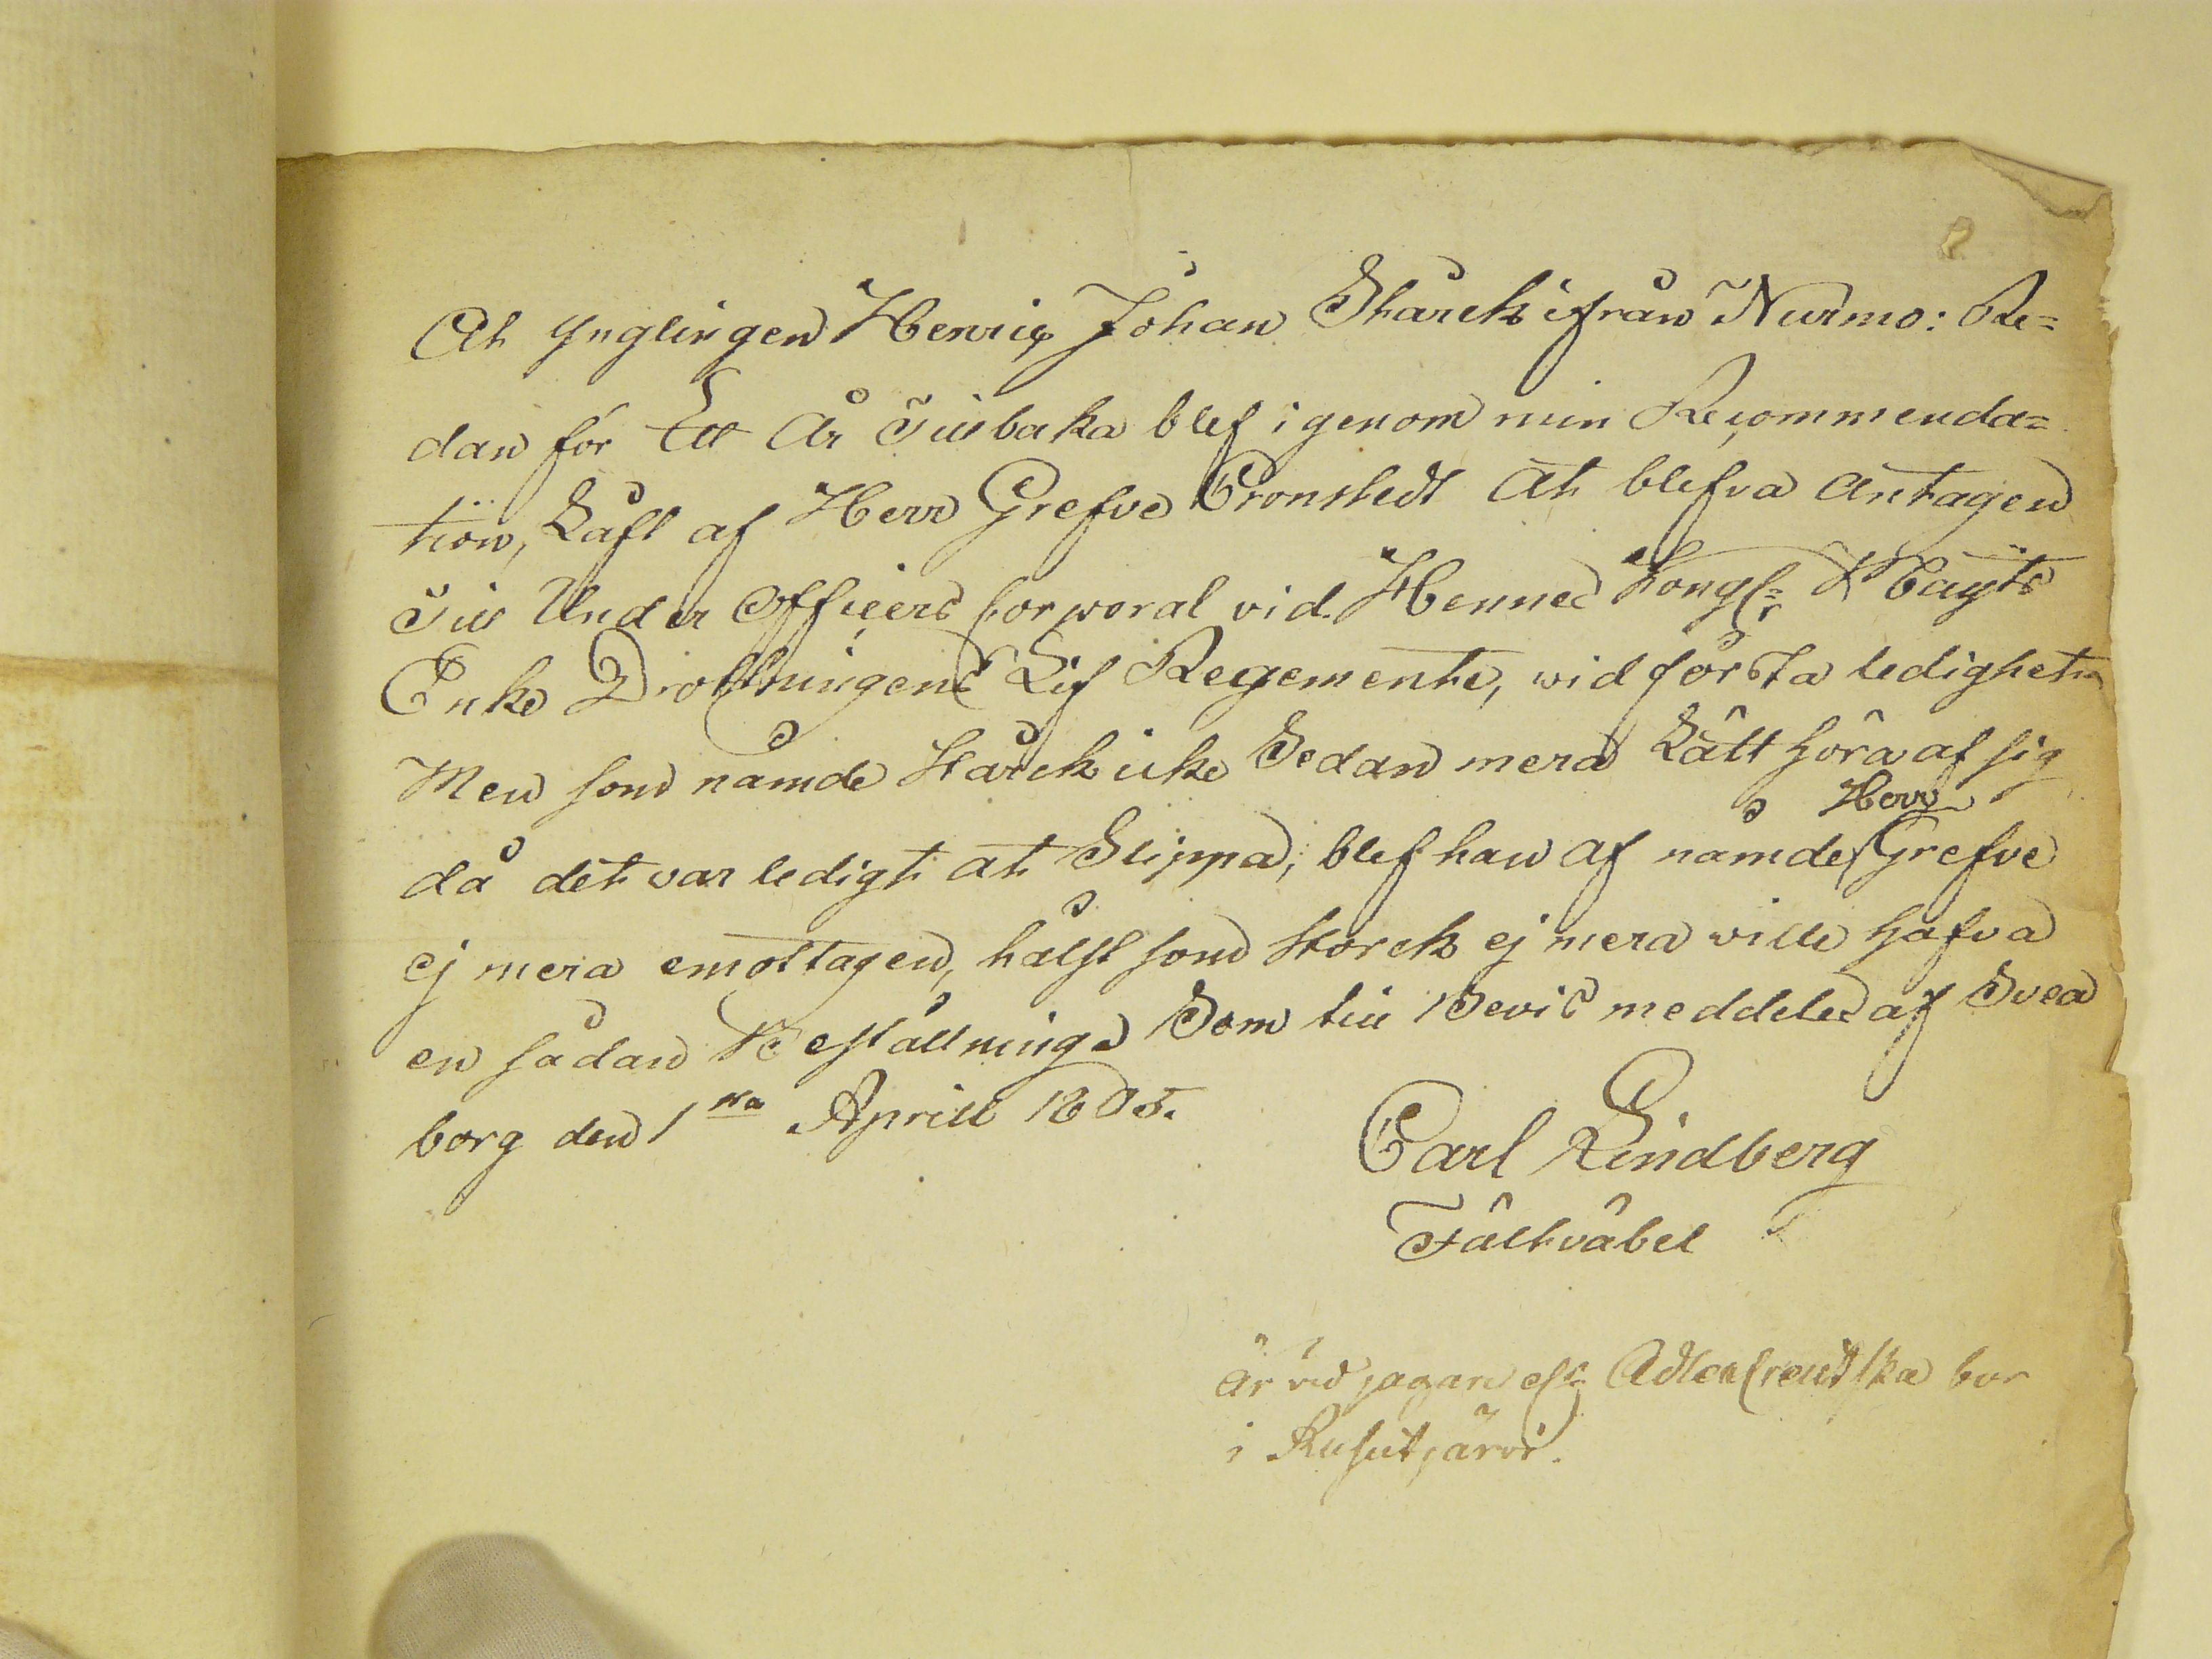 At Ynglingen Henric Johan Stärck ifrån Nurmo: Re=
dan för Ett År Tillbaka blef igenom min Recommenda=
tion, Låft af Herr Grefve Cronstedt At blefva Antagen
Till Under Officers Corporal vid Hennes Kongl:r Mayts
Enke Drottningens Lif Regemente, wid första ledigheten
Men som nämde Stärck icke Sedan mera Låtit höra af sig
då det var ledigt at Slippa, blef han af nämde Herr Grefve
ej mera emottagen, hälst som Storck ej mera wille hafva
en sådan Beställning. Som till Bevis meddeles af Svea
borg den 1sta Aprill 1805.
Carl Lindberg
Fältväbel
Är vid jagare Adlercreutska bor
i Rusutjärvi.